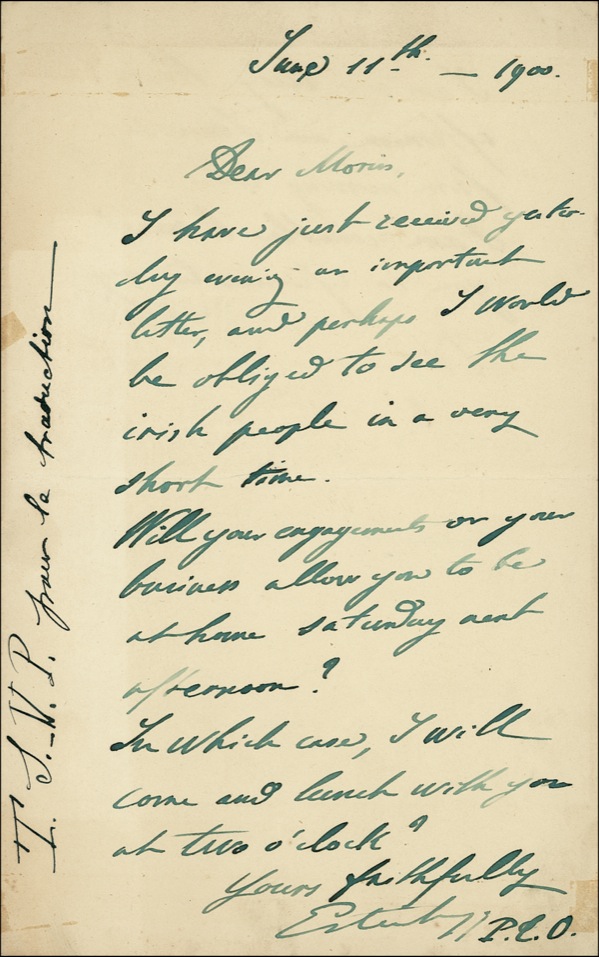 June 11th. — 1900.
Dear Morris,
I have just received yester-
day evening an important
letter, and perhaps I would
be obliged to see the
irish people in a very
short time.
Will your engagements or your
business allow you to be
at home saturday next
afternoon?
In which case, I will
come and lunch with you
at two o'clock?
Yours faithfully
P.L.O.
T. S. V. P. pour la traduction